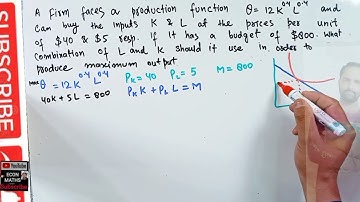 A Firm faces a production function Q = 12 K^0.4 L^0.4 and
can buy the inputs K & L at the prices per unit
of $40 & $5 resp. If it has a budget of $800. what
combination of L and K should it use in order to
produce maximum output
max Q = 12 K^0.4 L^0.4 PK = 40 PL = 5 M = 800
40K + 5L = 800 PK K + PL L = M
SUBSCRIBE
ECON
MATHS
Subscribe